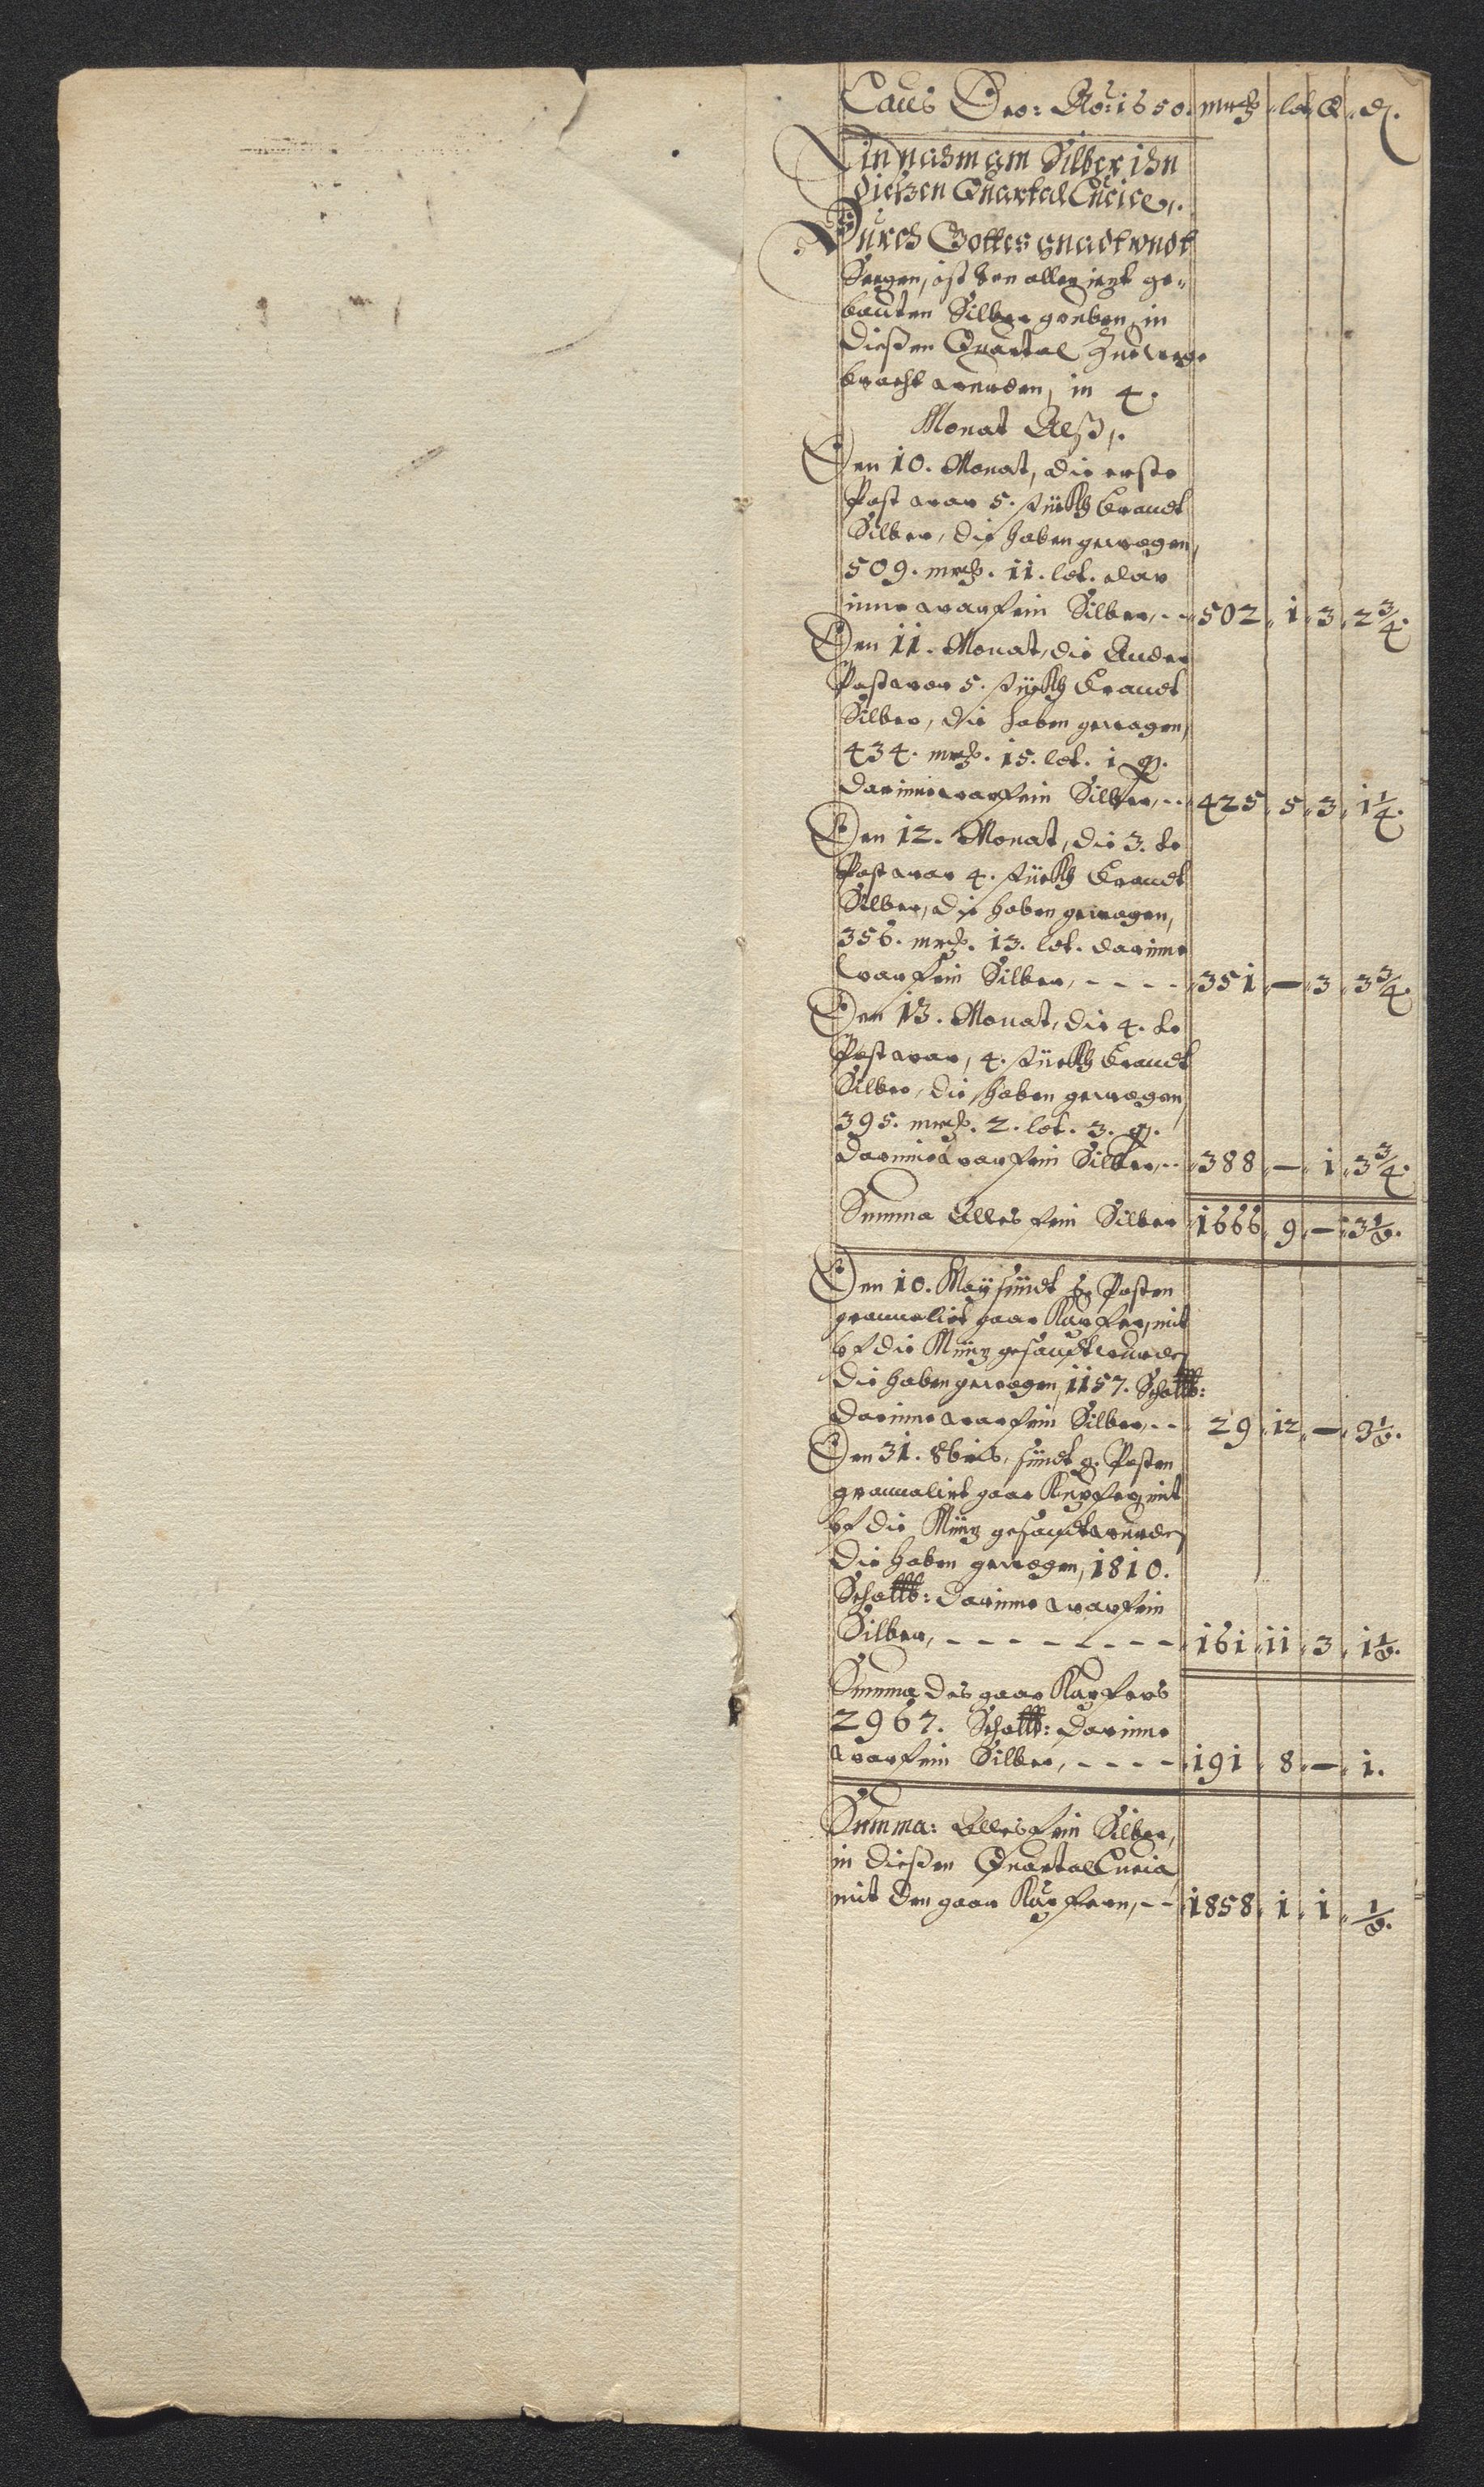 Laus Deo: Ao: 1650. mrck lot. Q. ₰.
Einnahm am Silber ihn
diesen Quartal Lucice,.
Durch Gottes gnadt vndt
Seegen, ist von allen jezt ge-
bauten Silber gruben, in
Diesen Quartal Zuwege
bracht worden, in 4.
Monat Alß,.
Den 10. Monat, die erste
Post war 5. stückh Brandt
Silber, die haben gewogen,
509. mrck. 11. lot. dar
inne war fein Silber, -- 502 1 3 2 3/4.
Den 11. Monat, die Ander
Post war 5. stückh Brandt
Silber, die haben gewogen,
434. mrck. 15. lot. 1 q.
darinne war fein Silber, -- 425 5 3 1 1/4.
Den 12. Monat, die 3. te
Post war 4. stückh Brandt
Silber, die haben gewogen,
356. mrck. 13. lot. darinne
war fein Silber, - - - - 351 — 3 3 3/4.
Den 13. Monat, die 4. te
Post war, 4. stückh Brandt
Silber, die haben gewogen,
395. mrck. 2. lot. 3. q.
darinne war fein Silber, -- 388 — 1 3 3/4.
Summa Alles fein Silber 1666 9 — 3 1/2.
Den 10. Maÿ sindt Posten
granualirt gaar Kupfer, mit
vf die Müntz gesandt worden
die haben gewogen, 1157. Schallb:
darinne war fein Silber, -- 29 12 — 3 1/2.
Den 31. 8bris, sindt 9. Posten
granualirt gaar Kupfer, mit
vf die Müntz gesandt worden
die haben gewogen, 1810.
Schallb: darinne war fein
Silber, - - - - - - - - 161 11 3 1 1/2.
Summa des gaar Kupfers
2967. Schallb: darinne
war fein Silber, - - - - 191 8 — 1.
Summa: Alles fein Silber,
in diesen Quartal Lucia
mit den gaar Kupfern, -- 1858 1 1 1/2.